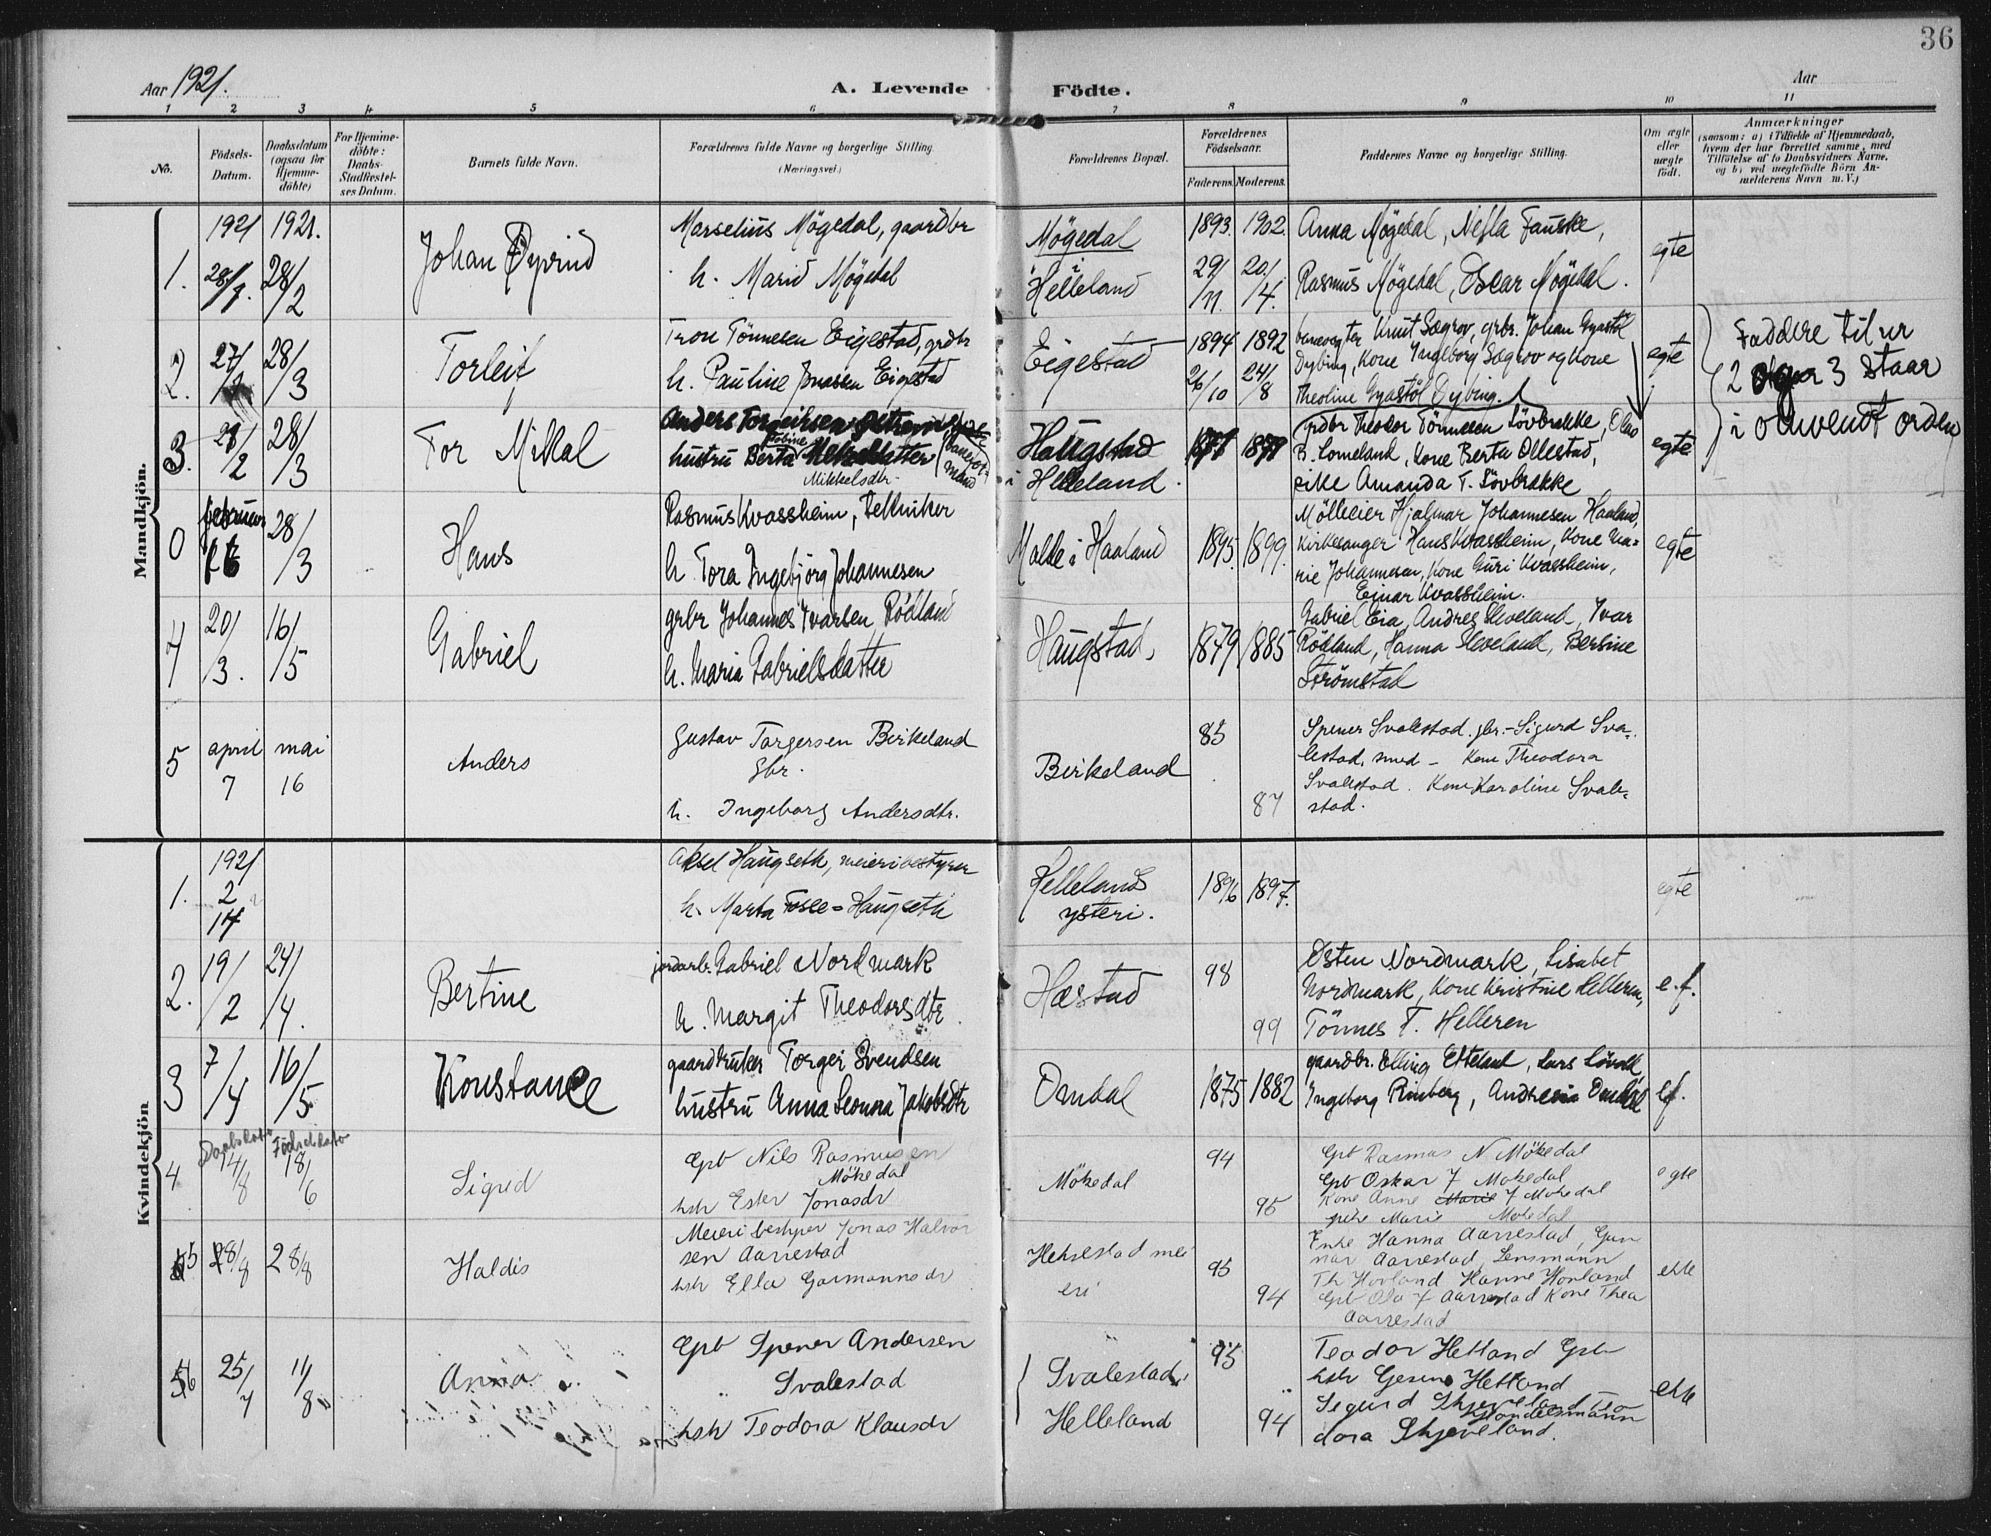 36
Aar 1921.
A. Levende Födte.
Aar
1 2 3 4 5 6 7 8 9 10 11
No.
Födsels-Datum.
Daabsdatum (ogsaa for Hjemme-döbte)
For Hjemme-döbte: Daabs-Stadfæstel-ses Datum.
Barnets fulde Navn.
Forældrenes fulde Navne og borgerlige Stilling.
(Næringsvei.)
Forældrenes Bopæl.
Forældrenes Födselsaar.
Faderens. Moderens.
Faddernes Navne og borgerlige Stilling.
Om ægte eller uægte födt.
Anmærkninger
(saasom: a) i Tilfælde af Hjemmedaab, hvem der har forrettet samme, med Tilföielse af to Daabsvidners Navne, og b) ved uægtefödte Börn An-melderens Navn m. V.)
Mandkjön.
1921 1921.
1. 28/1. 28/2
Johan Øyvind
Marselius Mögedal, gaardbr
h. Marie Mögedal
Mögedal
i
Helleland
1893. 1902.
29/11. 20/4.
Anna Mögedal, Nefla Fauske,
Rasmus Mögedal, Oscar Mögedal.
egte
2. 27/ 28/3
Torleif
Tron Tönnesen Eigestad, grdbr
h. Pauline Jonassen Eigestad
Eigestad
1894 1892
26/10 24/8
banevogter Knut Sægrov, grbr. Johan Gyastöl
Dybing, Kone Ingeborg Sægrov og Kone
Theoline Gyastöl Dybing.
egte
Faddere til nr
2 og 3 staar
i omvendt orden
3. 28/2 28/3
Tor Mikal
Anders
hustru Berta Tobine
Mikkelsdtr.
Haugstad
i Helleland.
grdbr Theodor Tönnesen Lövbrække, Olav
B. Lomeland, Kone Berta Ollestad,
pike Amanda T. Lövbrække
egte
0 februar 28/3
Hans
Rasmus Kvassheim, Tekniker
h. Tora Ingebjörg Johannesen
Malde i Haaland
1895. 1899.
Mölleier Hjalmar Johannesen Haaland,
Kirkesanger Hans Kvassheim, Kone Ma=
rie Johannesen, Kone Guri Kvassheim,
Einar Kvassheim.
egte
4 20/3. 16/5
Gabriel
grbr Johannes Ivarsen Rödland
h. Maria Gabrielsdatter
Haugstad,
1879 1885
Gabriel Eia, Andreas Sleveland, Ivar
Rödland, Hanna Sleveland, Bertine
Strömstad
5 april 7 mai 16
Anders
Gustav Torgersen Birkeland
Gbr.
h. Ingeborg Andersdtr.
Birkeland
85
87
Spener Svalestad. gbr. - Sigurd Sva-
lestad, smed - Kone Theodora
Svalestad. Kone Karoline Svale-
stad.
Kvindekjön
1921
1. 2
14
Aksel Haugseth, meieribestyrer
h. Marta = Haugseth
Hellelands
ysteri.
1896 1897.
egte
2. 19/2 24/4.
Bertine
jordarb. Gabriel Nordmark
h. Margit Theodorsdtr.
Hæstad
98
99
Østen Nordmark, Lisabet
Nordmark, Kone Kristine Helleren,
Tönnes T. Helleren
e.f.
3 7/4 16/5
Konstance
gaardbruker Torger Svendsen
hustru Anna Leonora Jakobsdtr
Omdal
1875 1882
gaardbr. Elling Etteland, Lars
Ingeborg Rimberg, Andreas Omdal
ef.
Daabsdato Födselsdato
4 14/8 18/6
Sigred
Gpb Nils Rasmusen
Mökedal
hstr Ester Jonasdr
Mökedal
94
95
Gpb Rasmus N. Mökedal
Gpb Oskar J Mökedal
Kone Anne Marie J Mökedal
pike Marie Mökedal
egte
5 28/8 28/8
Haldis
Meieribestyrer Jonas Halvor
sen Aarrestad
hstr Ella Garmannsdr
Hetlestad mei
eri
95
94
Enke Hanna Aarrestad, Gun
nar Aarrestad, Lensmann
Th Hovland Hanne Hovland
Gpb Aarrestad Kone Thea
Aarrestad
ekte
6 25/7 11/8
Anna
Gpb Spener Andersen
Svalestad
hstr Teodora Klausdr
Svalestad,
Helleland
95
94
Teodor Hetland Gpb
hstr Gesine Hetland
Sigurd Skjeveland Teo
Handelsmann
dora Skjeveland.
ekte